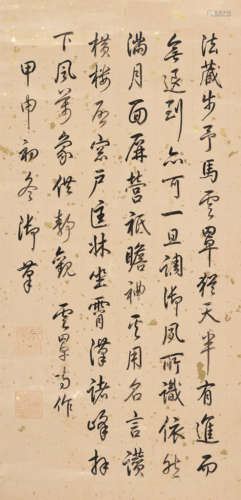 法藏步予馬雲罩猶天半有進而
無退到亦可一旦調御夙所識依然
滿月面屏營祇瞻禮奚用名言讚
橫樓啓窓戶匡牀坐霄漢諸峰拜
下風萬象供靜觀 雲罩寺作
甲申初冬御筆